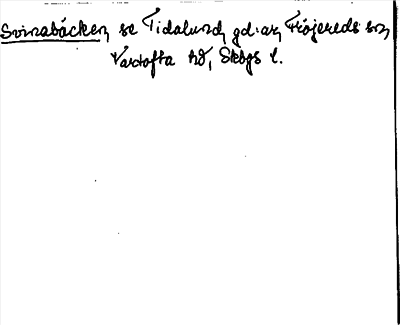 Svinabäcken, se Tidalund, gd:ar, Fröjereds sn,
Vartofta hd, Skbgs l.